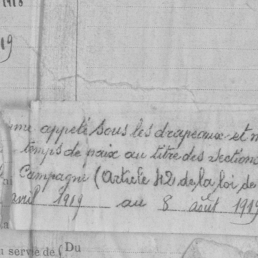 1918
19
me appelé sous les drapeaux et m
temps de paix au titre des section
Campagne (article 42) de la loi de
avril 1919 au 8 août 1919
u servie de { Du